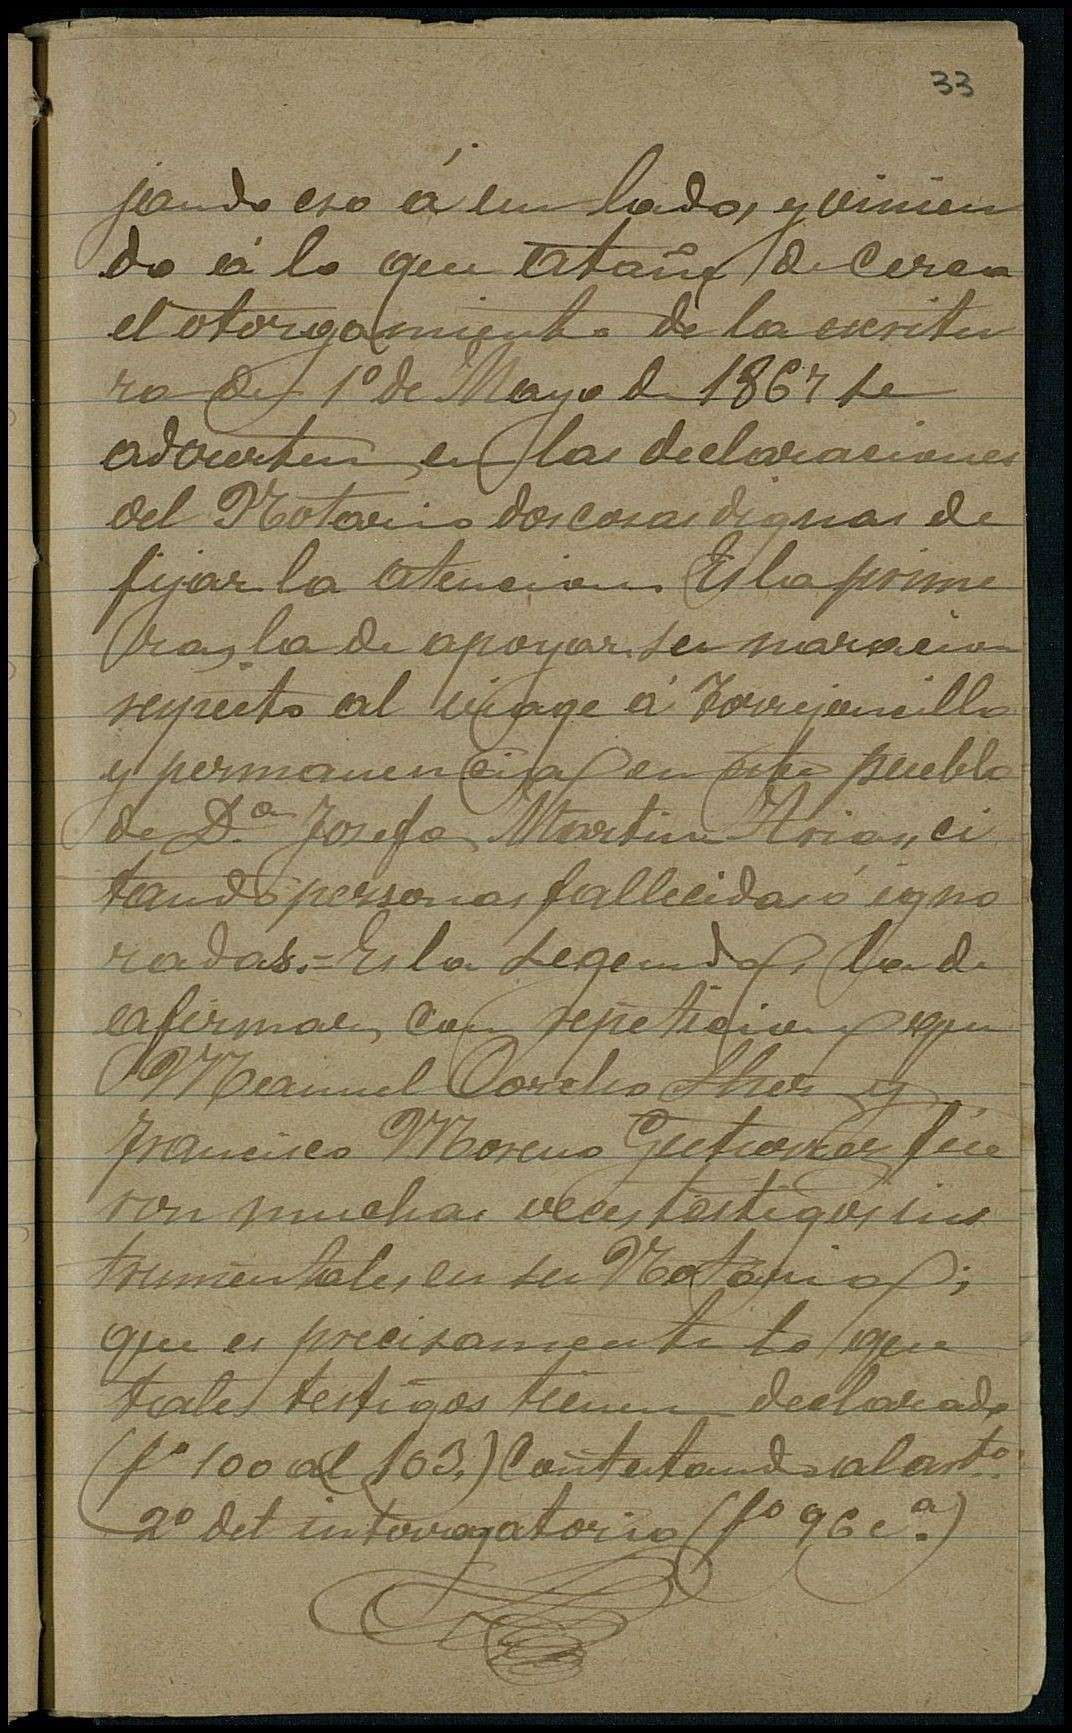 33
jando eso á un lado, y vinien
do á lo que atañe de cerca
el otorgamiento de la escritu
ra de 1º de Mayo de 1867 se
advierten en las declaraciones
del Notario dos cosas dignas de
fijar la atencion. Es la prime
ra, la de apoyar su naracion
respecto al viage á Torrejoncillo
y permanencia en este pueblo
de D.ª Josefa Martin Arias, ci
tando personas fallecidas ó igno
radas.= Es la segunda, la de
afirmar, con repeticion, que
Manuel Corcho y
Francisco Moreno Gutierrez fue
ron muchas veces testigos ins
trumentales en su Notaria;
que es precisamente lo que
tales testigos tienen declarado
(fº 100 al 103.) Contestando al artº
2º del interrogatorio (fº 96